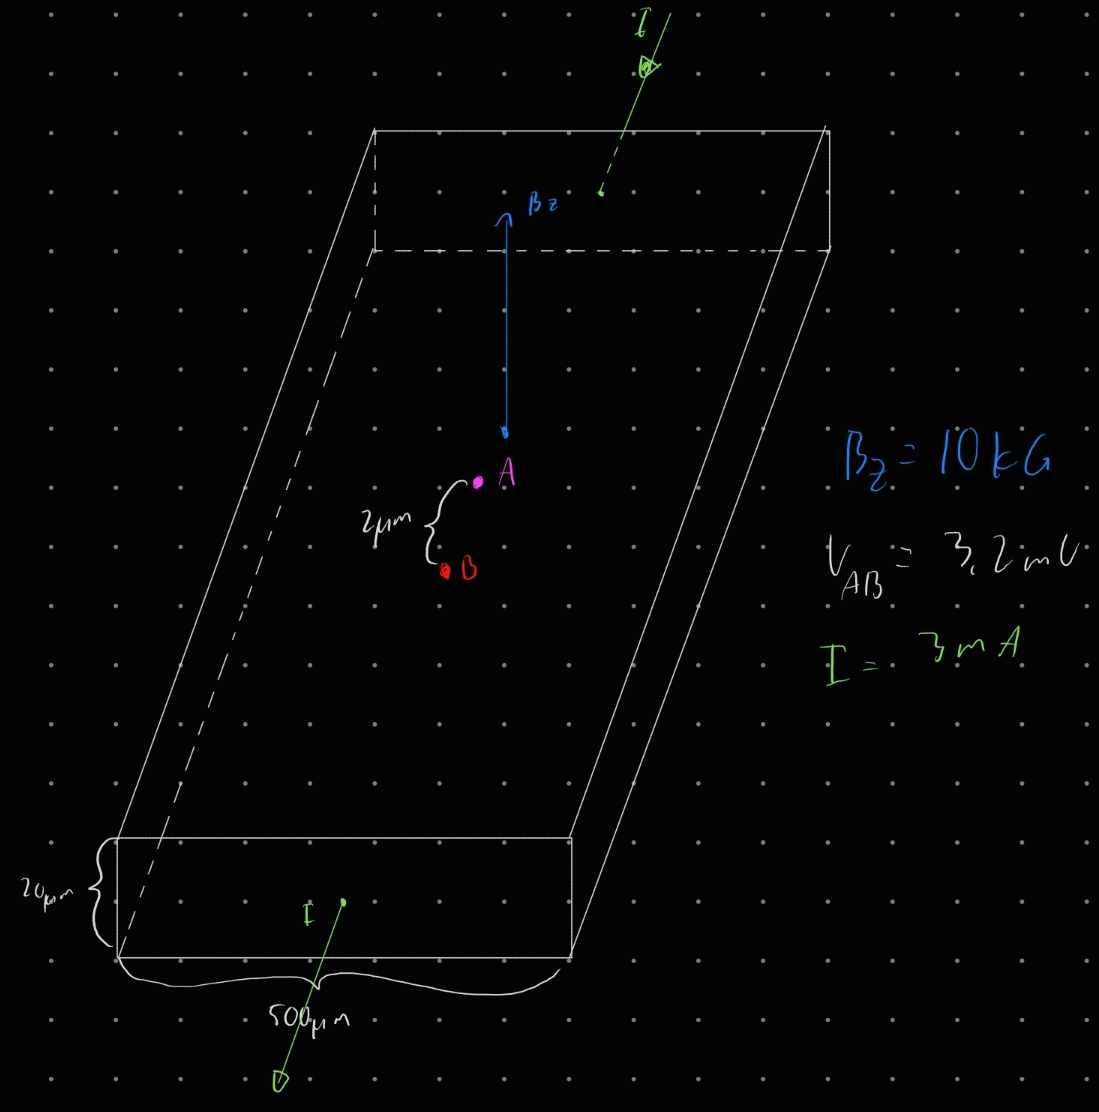 I
Bz
A
2μm
B
Bz = 10kG
VAB = 3.2mV
I = 3mA
20μm
I
500μm